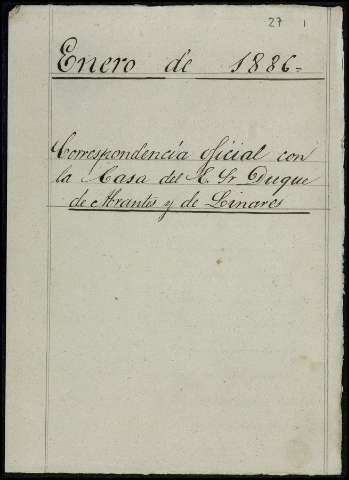 27 1
Enero de 1886=
Correspondencia oficial con
la Casa del E. Sr Duque
de Abrantes y de Linares